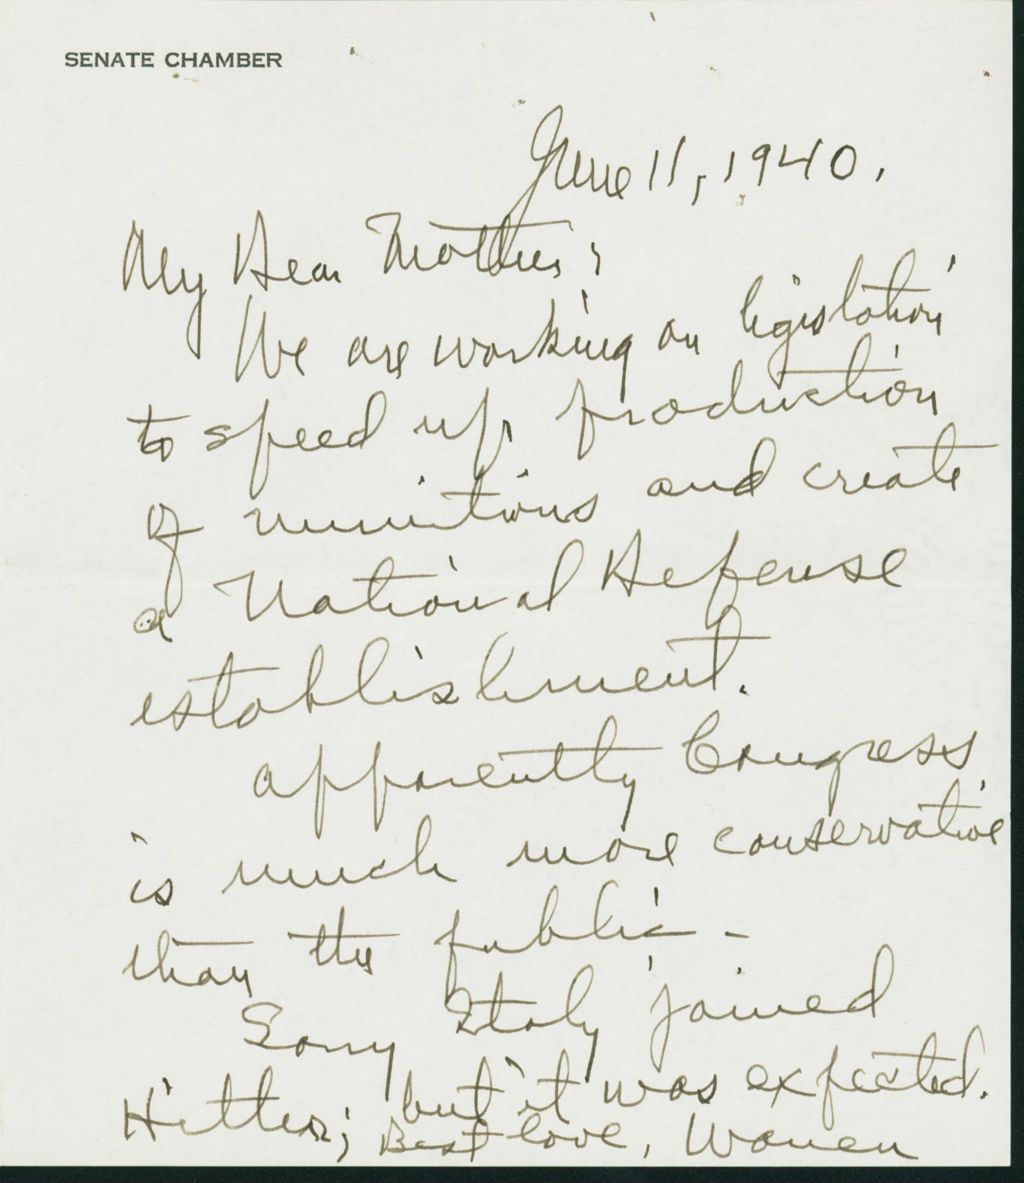 SENATE CHAMBER
June 11, 1940.
My Dear Mother;
We are working on legislation
to speed up production
of munitions and create
a National Defense
establishment.
Apparently Congress
is much more conservative
than the public -
Sorry Italy joined
Hitler; but it was expected.
Best love, Warren